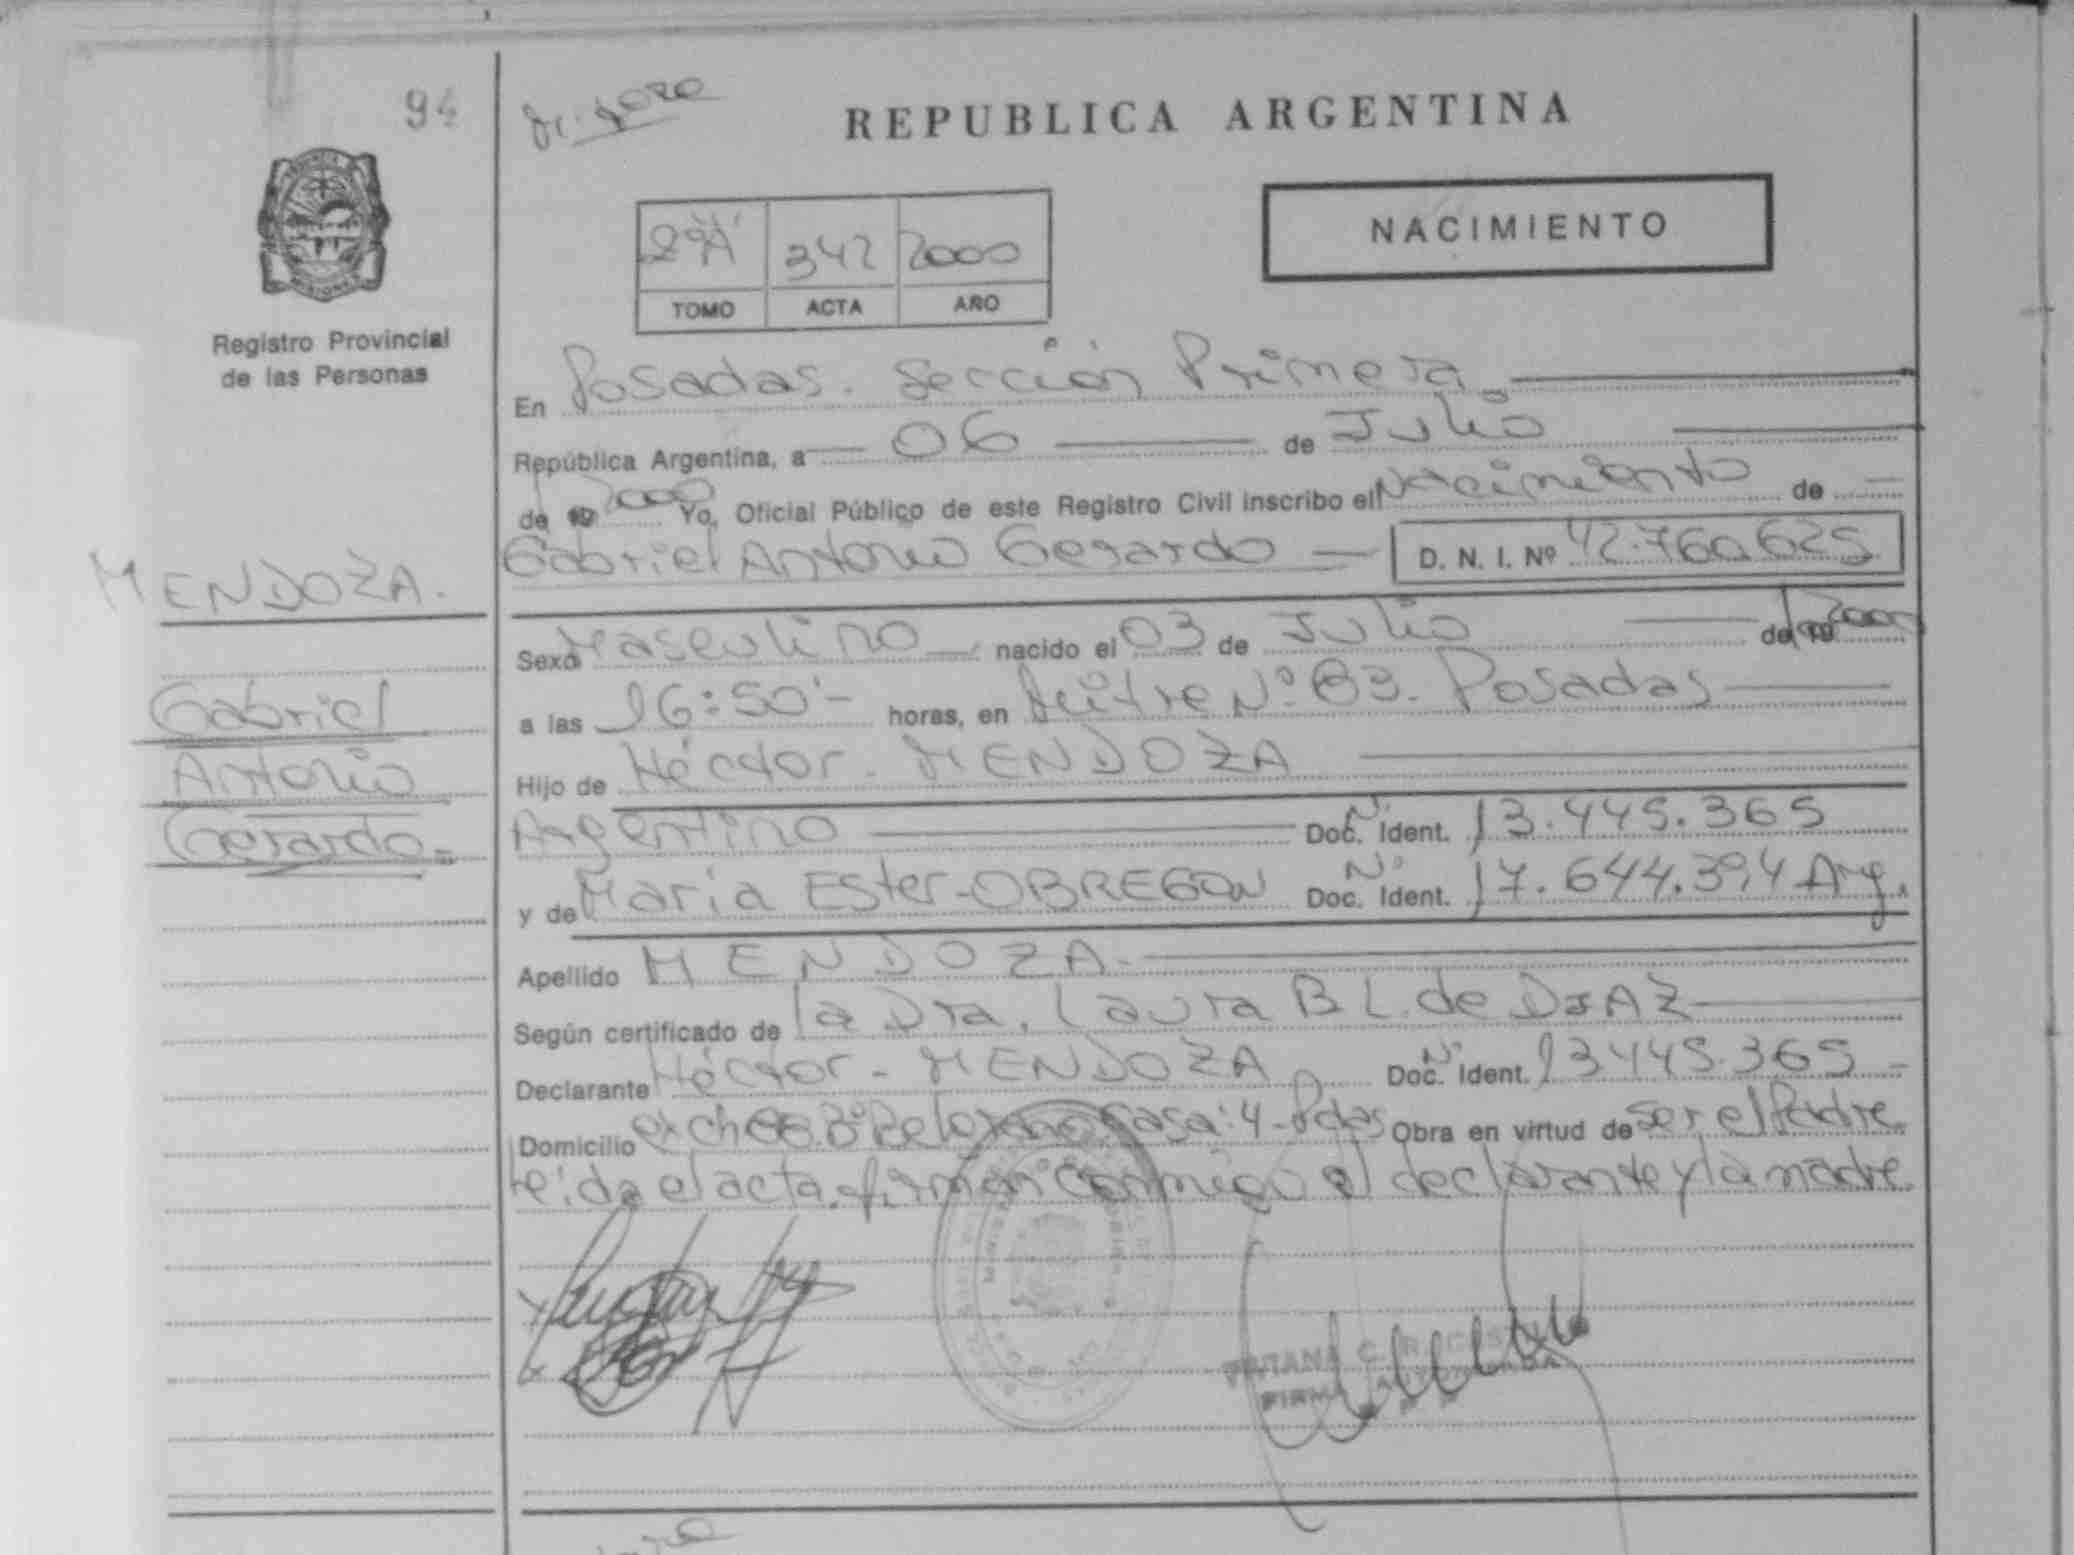 94
REPUBLICA ARGENTINA
342 2000
TOMO ACTA AÑO
NACIMIENTO
Registro Provincial
de las Personas
En Posadas. Sección Primera
República Argentina, a 06 de Julio
de 19 2000 Yo, Oficial Público de este Registro Civil inscribo el Nacimiento de
Gabriel Antonio Gerardo D. N. I. Nº 42.760.625
MENDOZA.
Sexo Masculino nacido el 03 de Julio de 19 2000
Gabriel
Antonio
Gerardo
a las 16:50 horas, en Mitre Nº 83. Posadas
Hijo de Héctor - MENDOZA
Argentino Doc. Ident. Nº 13.445.365
y de María Ester - OBREGON Doc. Ident. Nº 17.644.394 Arg.
Apellido MENDOZA
Según certificado de la Dra. Laura B L. de DIAZ
Declarante Héctor - MENDOZA Doc. Ident. Nº 13445.365
Domicilio casa: 4 - Pdas Obra en virtud de ser el Padre
Leída el acta firman conmigo el declarante y la madre